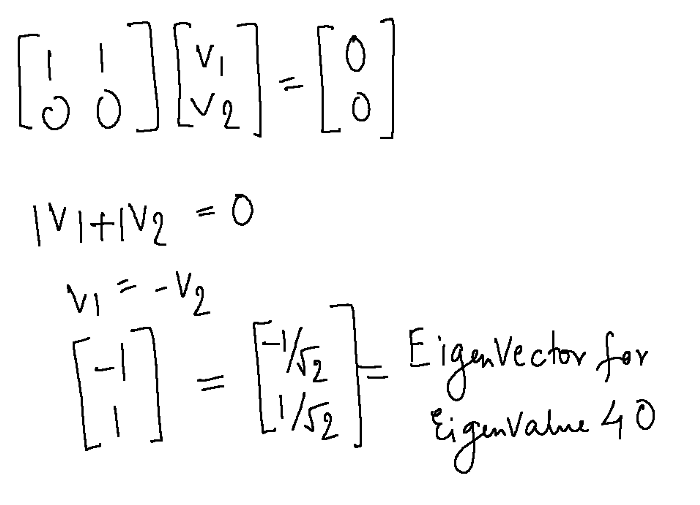 [1 1 0 0] [v1 v2] = [0 0]
1v1+1v2 = 0
v1 = -v2
[-1 1] = [-1/√2 1/√2] = EigenVector for
Eigenvalue 40